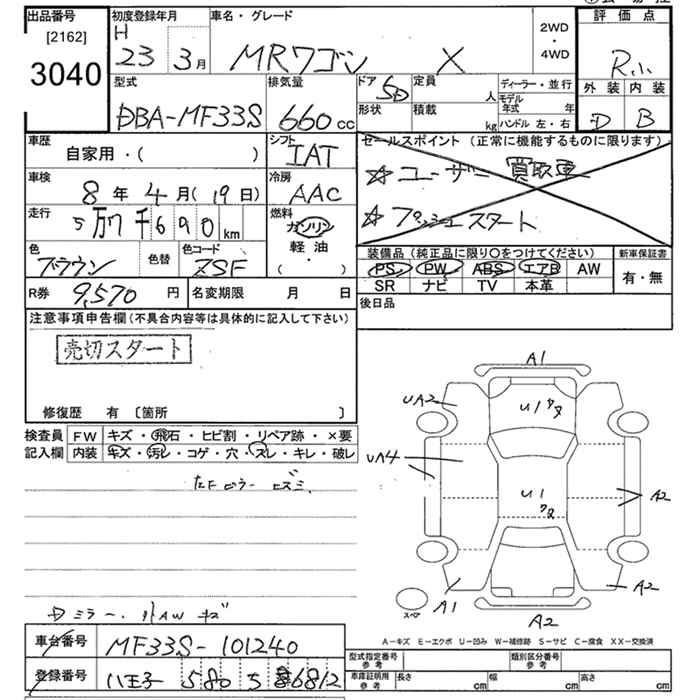 出品番号
[2162]
3040
初度登録年月
H
23 3月
車名・グレード
MRワゴン X
2WD
・
4WD
評価点
R
外装 内装
D B
型式
DBA-MF33S
排気量
660 cc
ドア
5D
定員
人
形状
積載
kg
ディーラー・並行
モデル年式 年
ハンドル 左・右
車歴
自家用・( )
シフト
IAT
セールスポイント (正常に機能するものに限ります)
☆ユーザー買取車
☆プッシュスタート
車検
8年4月(19日)
冷房
AAC
走行
5万7千690km
燃料
ガソリン
軽油
( ・ )
色
ブラウン
色替
色コード
ZSF
装備品 (純正品に限り○をつけてください)
PS PW ABS エアB AW
SR ナビ TV 本革
新車保証書
有・無
R券 9,570 円
名変期限 月 日
後日品
注意事項申告欄 (不具合内容等は具体的に記入して下さい)
売切スタート
修復歴 有 〔箇所 〕
検査員
記入欄
FW キズ・飛石・ヒビ割・リペア跡・×要
内装 キズ・汚レ・コゲ・穴・スレ・キレ・破レ
A1
UA2
U1
UA4
U1
A2
A1
A2
A2
スペア
A-キズ E-エクボ U-凹み W-補修跡 S-サビ C-腐食 XX-交換済
車台番号 MF33S-101240
登録番号 八王子 580 6812
型式指定番号
参考
類別区分番号
参考
車庫証明用
参考
長さ cm
幅 cm
高さ cm